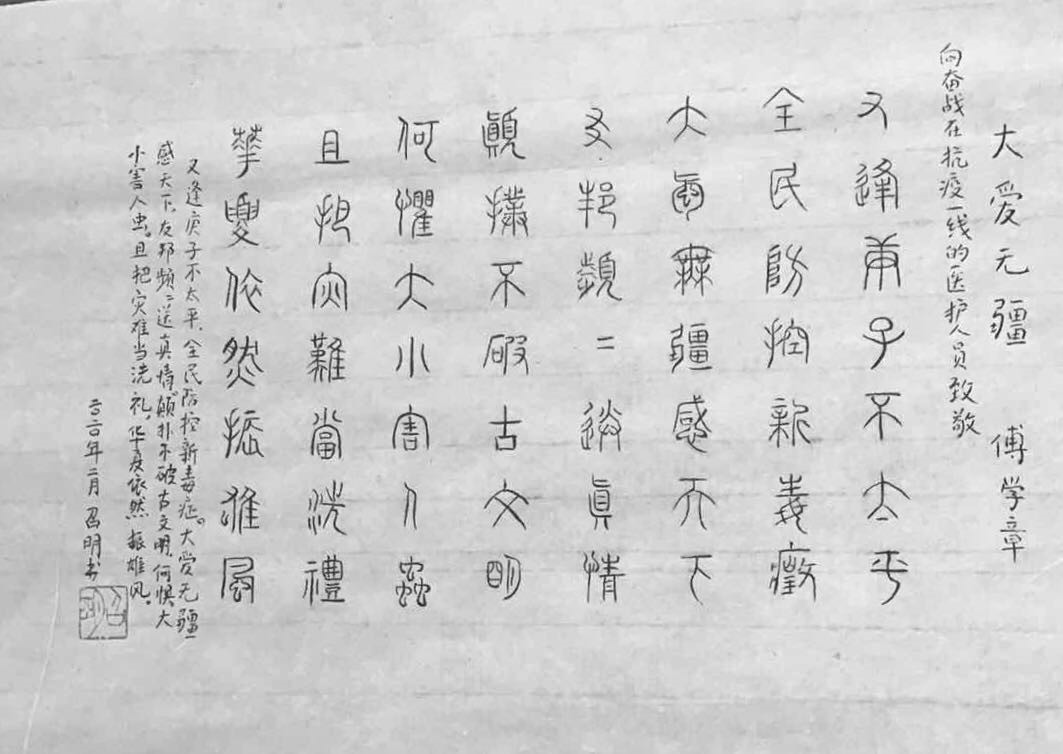 大爱无疆 傅学章
向奋战在抗疫一线的医护人员致敬
又逢庚子不太平
全民防控新毒癥
大愛無疆感天下
友邦頻二送眞情
顛撲不破古文明
何懼大小害人蟲
且把灾難當洗禮
華夏依然振雄風
又逢庚子不太平、全民防控新毒症。大爱无疆
感天下、友邦频〃送真情、颠扑不破古文明、何惧大
小害人虫。且把灾难当洗礼、华夏依然振雄风。
二〇二〇年二月 召明书